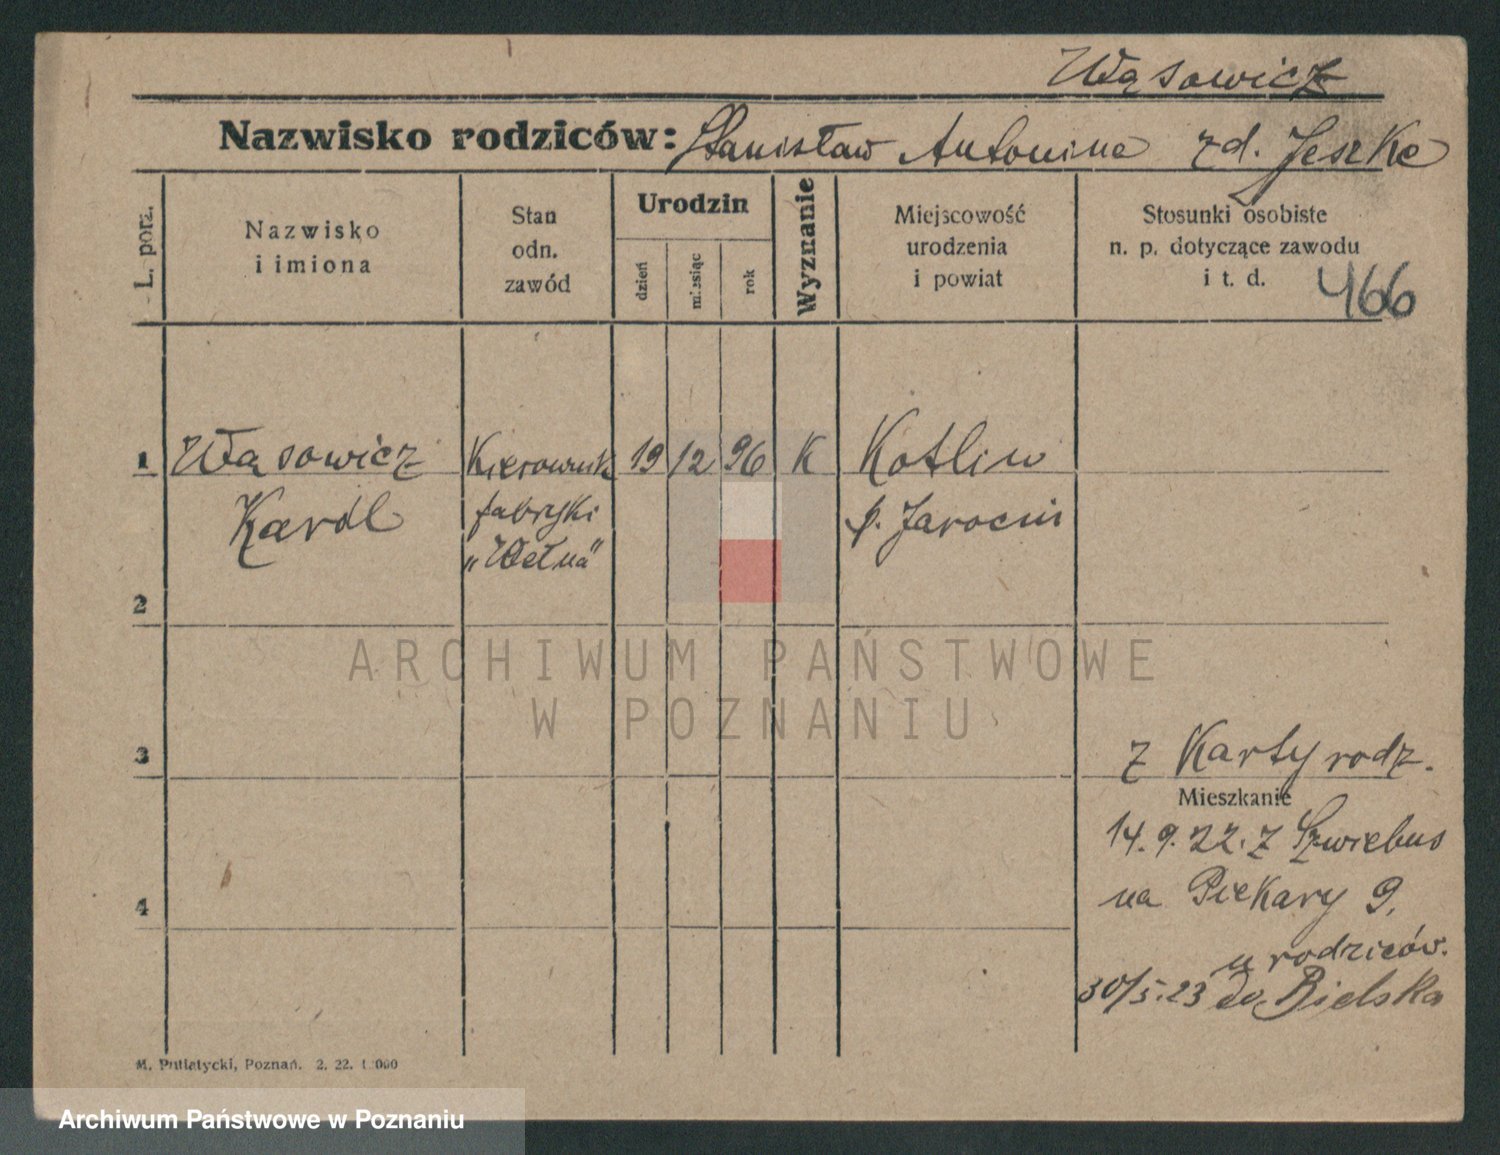 Wąsowicz
Nazwisko rodziców: Stanisław Antonina zd. Jeszke
L. porz.
Nazwisko
i imiona
Stan
odn.
zawód
Urodzin
dzień
miesiąc
rok
Wyznanie
Miejscowość
urodzenia
i powiat
Stosunki osobiste
n. p. dotyczące zawodu
i t. d.
466
1 Wąsowicz Kierownik 19 12 96 K Kotlin
Karol fabryki p. Jarocin
"Wełna"
2
ARCHIWUM PAŃSTWOWE
W POZNANIU
3
z Karty rodz.
Mieszkanie
14.9.22. z Szwiebus
4
na Piekary 9.
u rodziców.
30/5.23 do Bielska
M. Putiatycki, Poznań. 2. 22.
Archiwum Państwowe w Poznaniu